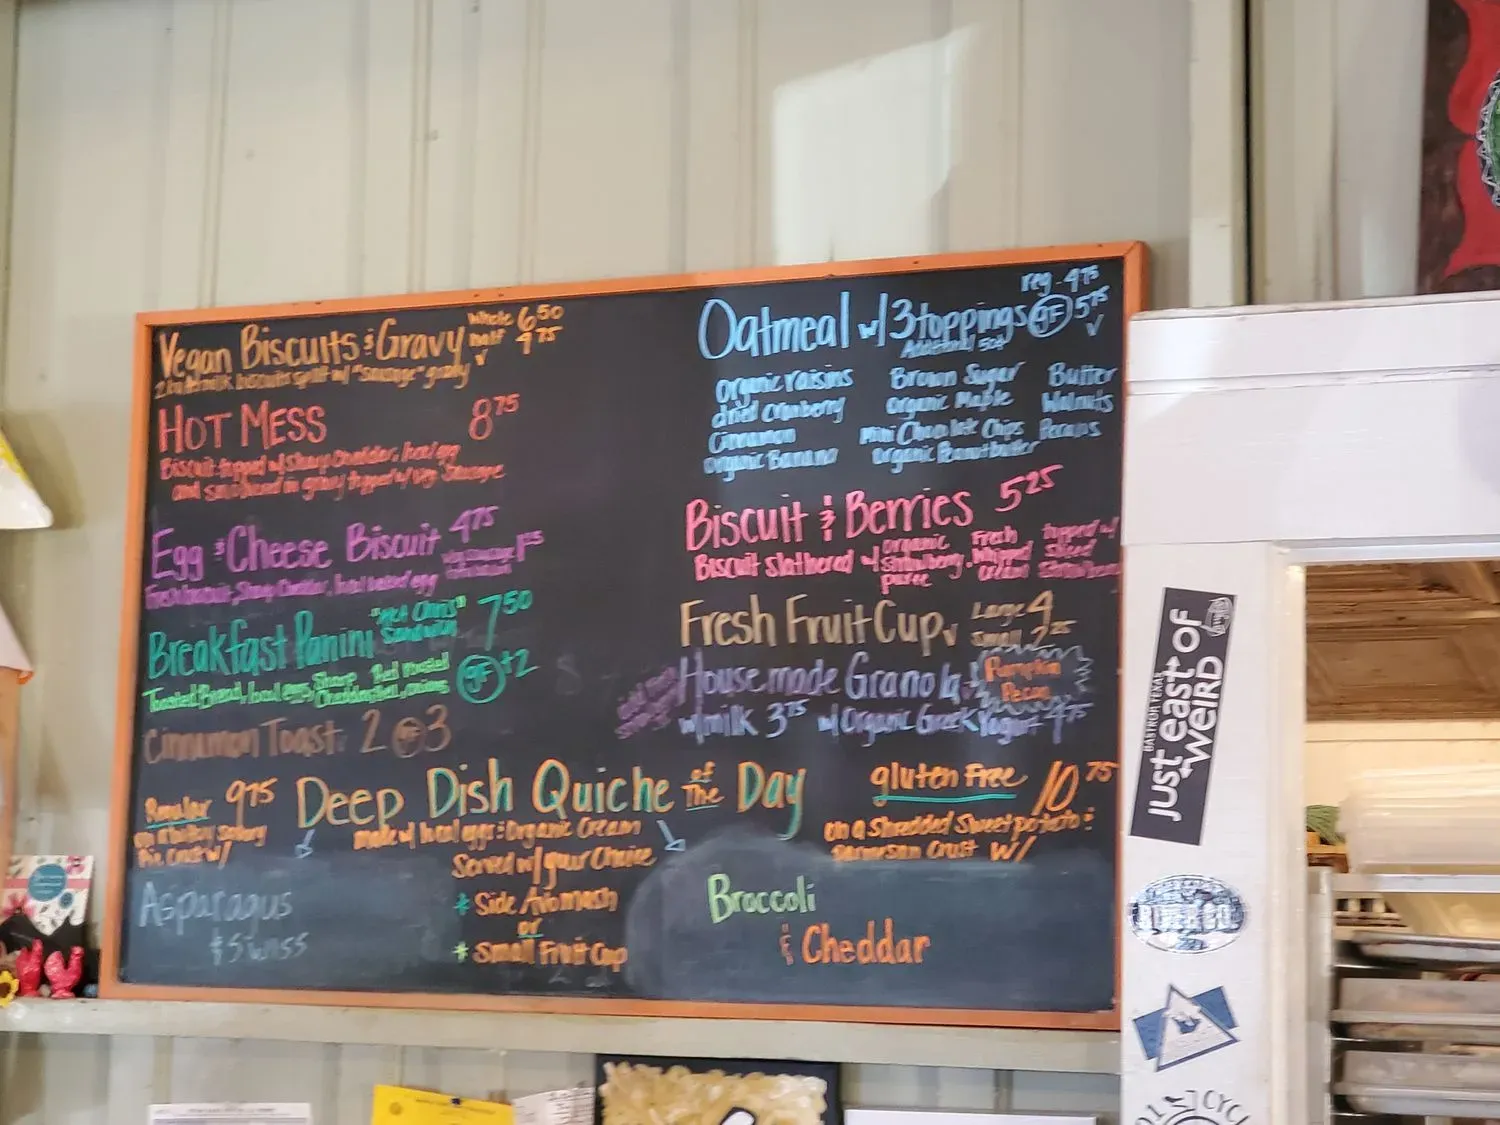 Vegan Biscuits & Gravy whole 6.50
half 4.75
biscuits split w/ "sausage" gravy
HOT MESS 8.75
Biscuit topped w/ sharp cheddar, local egg
and smothered in gravy topped w/ veg. sausage
Egg & Cheese Biscuit 4.75
Fresh biscuit, Sharp Cheddar, local baked egg
Breakfast Panini "Hot Chris" Sandwich 7.50
Toasted Bread, local eggs, Sharp Cheddar, Red roasted onions GF +2
Cinnamon Toast 2 GF 3
Oatmeal w/ 3 toppings reg 4.75
GF 5.75 ✓
Additional 50¢
Organic raisins Brown Sugar Butter
dried cranberry organic Maple Walnuts
Cinnamon Mini Chocolate Chips Pecans
organic Banana organic Peanut butter
Biscuit & Berries 5.25
Biscuit slathered w/ organic strawberry puree, Fresh Whipped Cream topped w/ sliced strawberries
Fresh Fruit Cup v Large 4
Small 2.25
House made Granola Pumpkin Pecan
w/ milk 3.75 w/ Organic Greek Yogurt 4.75
Deep Dish Quiche of The Day
Regular 9.75
pie crust w/
made w/ local eggs & Organic Cream
Served w/ your Choice
* Side
or
* Small Fruit Cup
gluten Free 10.75
on a Shredded Sweet potato &
Parmesan Crust w/
Asparagus
& Swiss
Broccoli
& Cheddar
BASTROP TEXAS
just east of
weird
CYCL